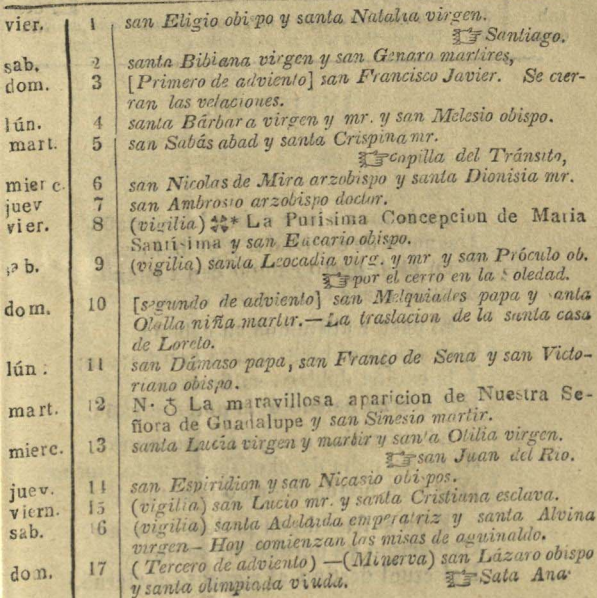 vier. 1 san Eligio obi po y santa Natalia virgen.
☞ Santiago.
sab. 2 santa Bibiana virgen y san Genaro martires,
dom. 3 [Primero de adviento] san Francisco Javier. Se cier-
ran las velaciones.
lún. 4 santa Bárbara virgen y mr. y san Melesio obispo.
mart. 5 san Sabás abad y santa Crispina mr.
☞ capilla del Tránsito,
mierc. 6 san Nicolas de Mira arzobispo y santa Dionisia mr.
juev 7 san Ambrosio arzobispo doctor.
vier. 8 (vigilia) ✠* La Purisima Concepcion de Maria
Santísima y san Eucario obispo.
sab. 9 (vigilia) santa Leocadia virg. y mr y san Próculo ob.
☞ por el cerro en la Soledad.
dom. 10 [segundo de adviento] san Melquiades papa y santa
Olalla niña martir.—La traslacion de la santa casa
de Loreto.
lún. 11 san Dámaso papa, san Franco de Sena y san Victo-
riano obispo.
mart. 12 N. ♁ La maravillosa aparicion de Nuestra Se-
ñora de Guadalupe y san Sinesio martir.
mierc. 13 santa Lucía virgen y martir y santa Otilia virgen.
☞ san Juan del Rio.
juev. 14 san Espiridion y san Nicasio obispos.
viern. 15 (vigilia) san Lucio mr. y santa Cristiana esclava.
sab. 16 (vigilia) santa Adelaida emperatriz y santa Alvina
virgen—Hoy comienzan las misas de aguinaldo.
dom. 17 (Tercero de adviento)—(Minerva) san Lázaro obispo
y santa olimpiada viuda. ☞ Sata Ana